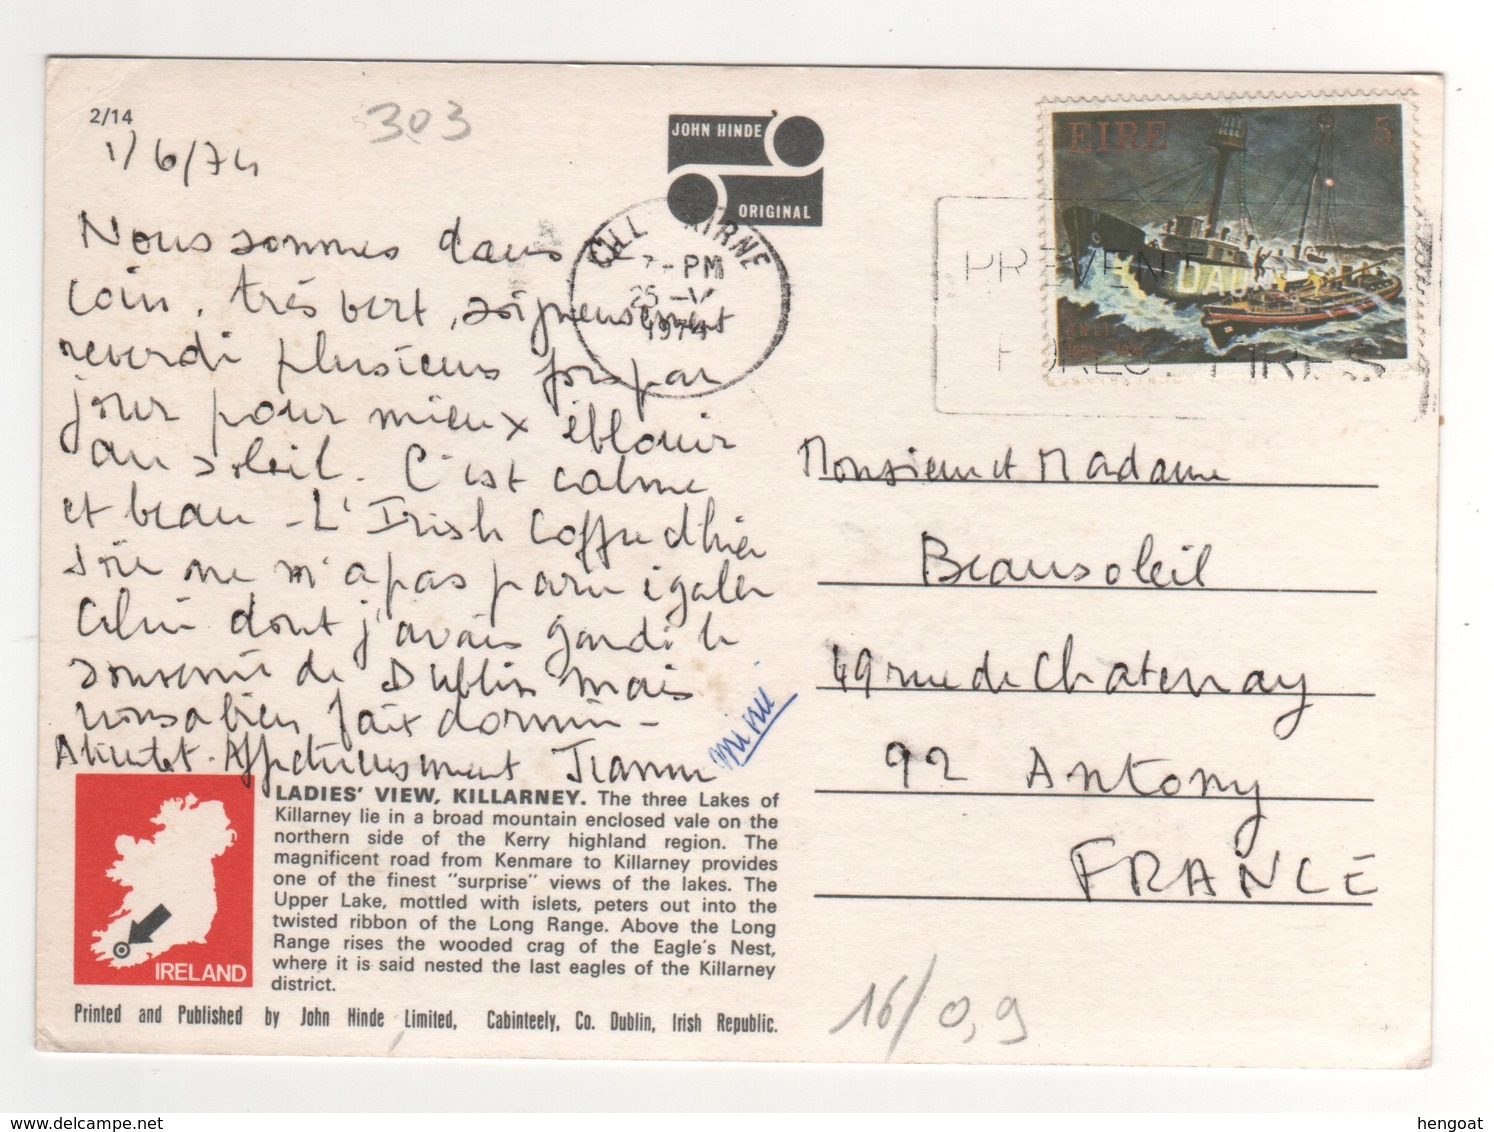 2/14
303
1/6/74
JOHN HINDE
ORIGINAL
EIRE 5
CILL AIRNE
7-PM
25-V
1974
PREVENT
FOREST FIRES
Nous sommes dans
coin, très vert, soigneusement
reverdi plusieurs fois par
jour pour mieux éblouir
au soleil. C'est calme
et beau - L'Irish Coffee d'hier
soir ne m'a pas paru égaler
celui dont j'avais gardé le
souvenir de Dublin mais
nous a bien fait dormir -
A bientôt. Affectueusement Jeanne
mimi
Monsieur et Madame
Beausoleil
49 rue de Chatenay
92 Antony
FRANCE
LADIES' VIEW, KILLARNEY. The three Lakes of
Killarney lie in a broad mountain enclosed vale on the
northern side of the Kerry highland region. The
magnificent road from Kenmare to Killarney provides
one of the finest "surprise" views of the lakes. The
Upper Lake, mottled with islets, peters out into the
twisted ribbon of the Long Range. Above the Long
Range rises the wooded crag of the Eagle's Nest,
where it is said nested the last eagles of the Killarney
district.
IRELAND
Printed and Published by John Hinde Limited, Cabinteely, Co. Dublin, Irish Republic.
16/0,9
hengoat